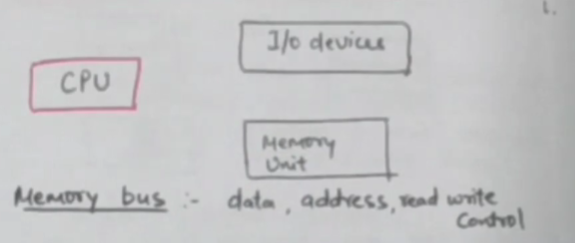 1.
I/o devices
CPU
Memory
Unit
Memory bus :- data, address, read write
Control